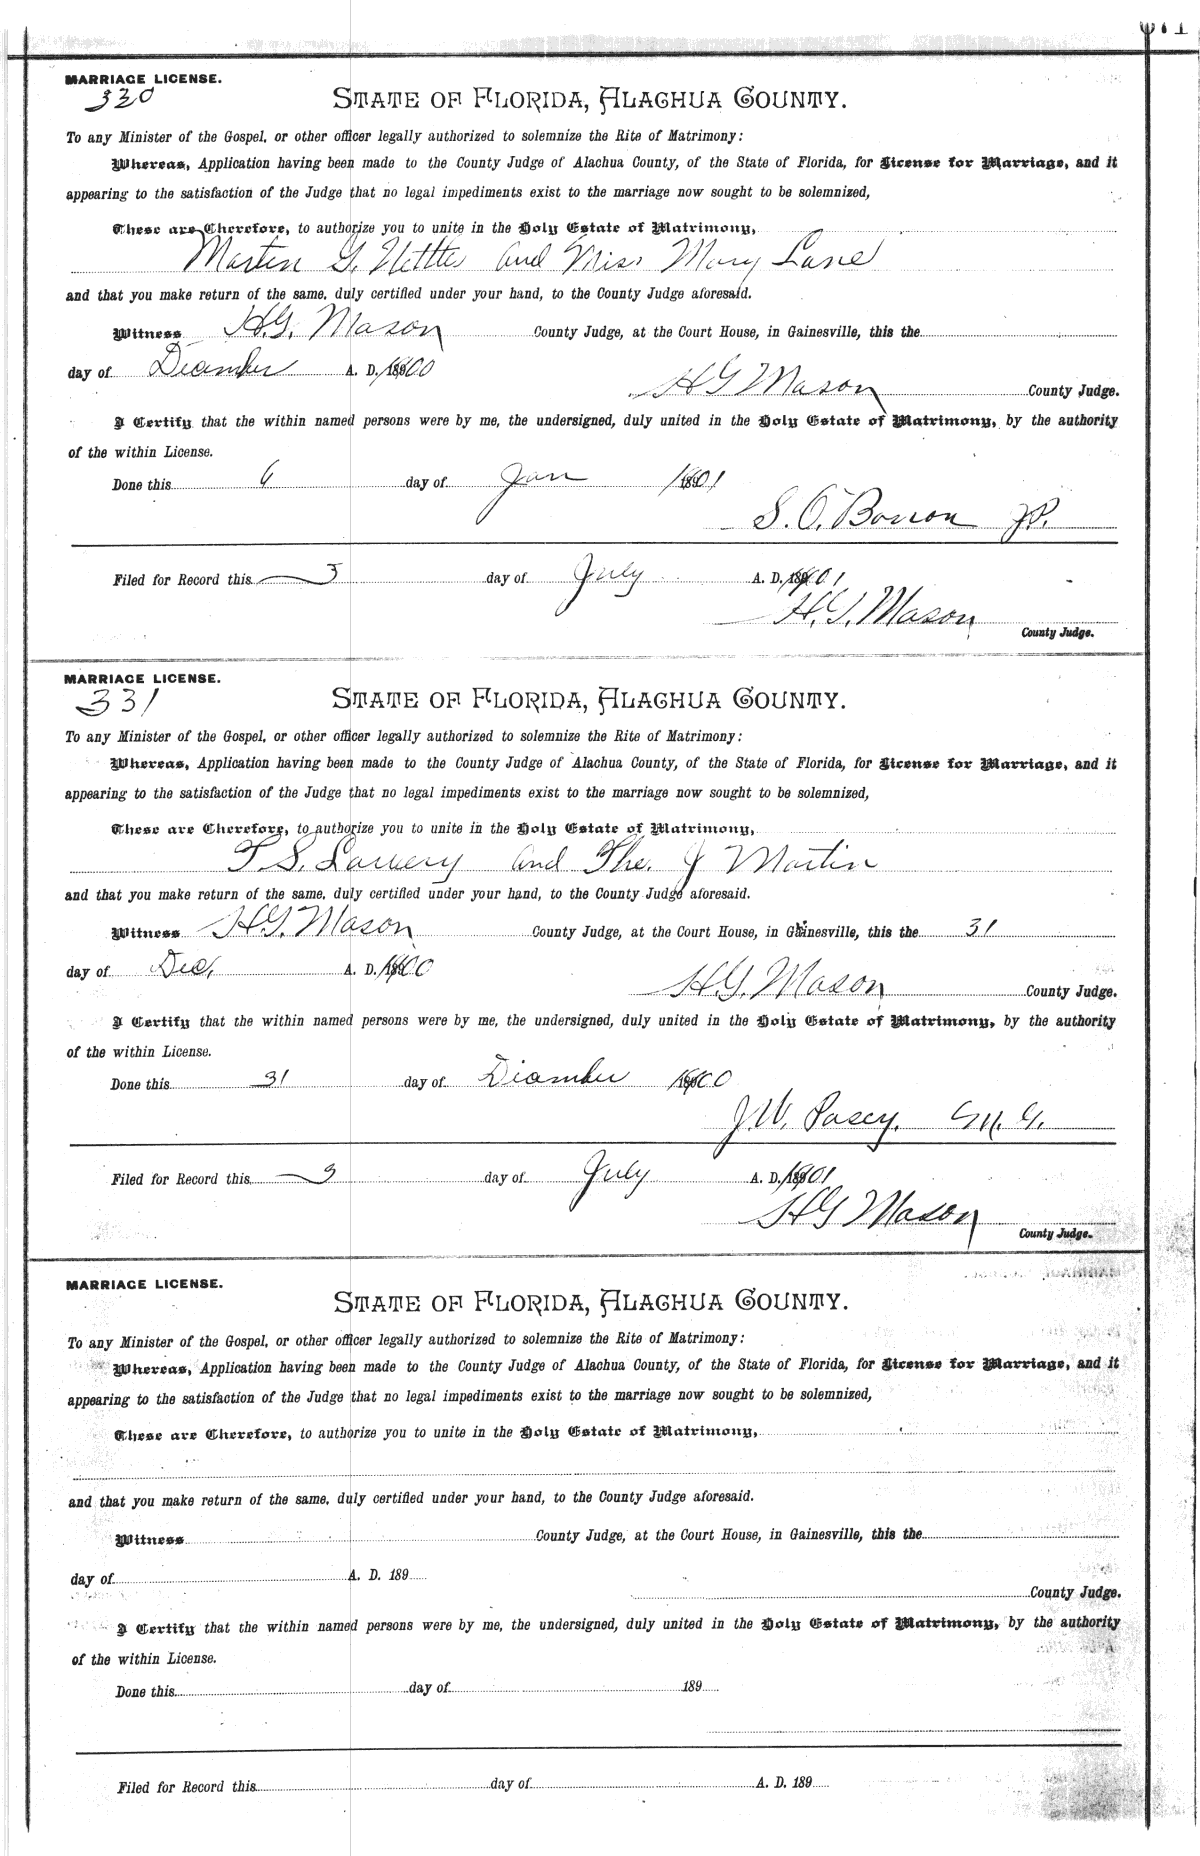 MARRIAGE LICENSE.
330
STATE OF FLORIDA, ALACHUA COUNTY.
To any Minister of the Gospel, or other officer legally authorized to solemnize the Rite of Matrimony:
Whereas, Application having been made to the County Judge of Alachua County, of the State of Florida, for License for Marriage, and it
appearing to the satisfaction of the Judge that no legal impediments exist to the marriage now sought to be solemnized,
These are Therefore, to authorize you to unite in the Holy Estate of Matrimony,
Martin G. Nettles and Miss Mary Lane
and that you make return of the same, duly certified under your hand, to the County Judge aforesaid.
Witness H.G. Mason County Judge, at the Court House, in Gainesville, this the
day of December A. D. 1900
H G Mason County Judge.
I Certify that the within named persons were by me, the undersigned, duly united in the Holy Estate of Matrimony, by the authority
of the within License.
Done this 6 day of Jan 1901
S. O. J.P.
Filed for Record this 3 day of July A. D. 1901
H. G. Mason
County Judge.
MARRIAGE LICENSE.
331
STATE OF FLORIDA, ALACHUA COUNTY.
To any Minister of the Gospel, or other officer legally authorized to solemnize the Rite of Matrimony:
Whereas, Application having been made to the County Judge of Alachua County, of the State of Florida, for License for Marriage, and it
appearing to the satisfaction of the Judge that no legal impediments exist to the marriage now sought to be solemnized,
These are Therefore, to authorize you to unite in the Holy Estate of Matrimony,
T. S. and J Martin
and that you make return of the same, duly certified under your hand, to the County Judge aforesaid.
Witness H.G. Mason County Judge, at the Court House, in Gainesville, this the 31
day of Dec, A. D. 1900
H.G. Mason County Judge.
I Certify that the within named persons were by me, the undersigned, duly united in the Holy Estate of Matrimony, by the authority
of the within License.
Done this 31 day of December 1900
J. W. M. G.
Filed for Record this 3 day of July A. D. 1901
H G Mason
County Judge.
MARRIAGE LICENSE.
STATE OF FLORIDA, ALACHUA COUNTY.
To any Minister of the Gospel, or other officer legally authorized to solemnize the Rite of Matrimony:
Whereas, Application having been made to the County Judge of Alachua County, of the State of Florida, for License for Marriage, and it
appearing to the satisfaction of the Judge that no legal impediments exist to the marriage now sought to be solemnized,
These are Therefore, to authorize you to unite in the Holy Estate of Matrimony,
and that you make return of the same, duly certified under your hand, to the County Judge aforesaid.
Witness County Judge, at the Court House, in Gainesville, this the
day of A. D. 189
County Judge.
I Certify that the within named persons were by me, the undersigned, duly united in the Holy Estate of Matrimony, by the authority
of the within License.
Done this day of 189
Filed for Record this day of A. D. 189